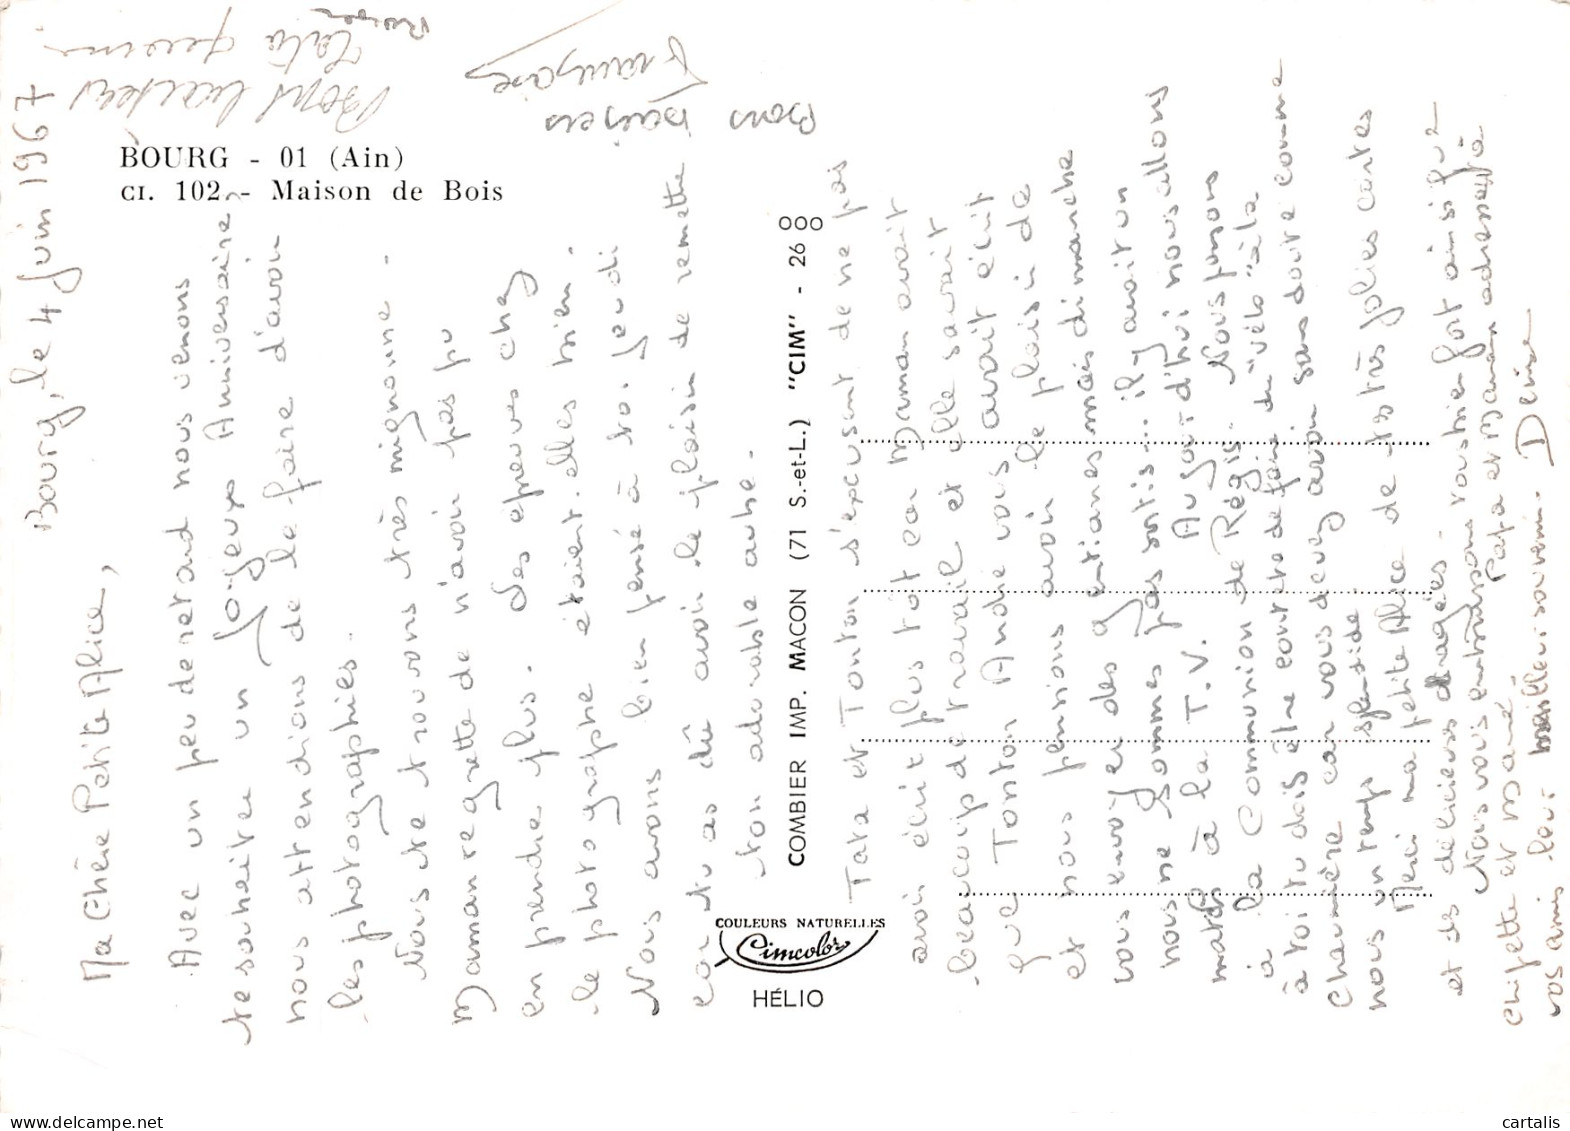 BOURG - 01 (Ain)
CI. 102. - Maison de Bois
Bourg, le 4 Juin 1967
Ma Chère Petite Alice,
Avec un peu de retard nous venons
te souhaiter un Joyeux Anniversaire,
nous attendions de le faire d'avoir
les photographies.
Nous te trouvons très mignonne.
Maman regrette de n'avoir pas pu
en prendre plus. Les épreuves chez
le photographe étaient-elles bien.
Nous avons bien pensé à toi jeudi
car tu as dû avoir le plaisir de remettre
ton adorable aube.
Tata et Tonton s'excusent de ne pas
avoir écrit plus tôt car Maman avait
beaucoup de travail et elle savait
que Tonton André vous avait écrit
et nous pensions avoir le plaisir de
vous envoyer des gentianes mais dimanche
nous ne sommes pas sortis... il y avait un
match à la T.V. Aujourd'hui nous allons
à la Communion de Régis. Nous pensons
à toi tu dois être contente de faire du "vélo" à la
Chaumière car vous devez avoir sans doute comme
nous un temps splendide.
Merci ma petite Alice de tes très jolies cartes
et des délicieuses dragées.
Nous vous embrassons tous bien fort ainsi que
Chifette et Mamé. Papa et Maman adressent à
vos amis leur meilleur souvenir. Denise
Bons baisers
Françoise
Bons baisers
Tata
COMBIER IMP. MACON (71 S.-et-L.) "CIM" - 26 000
COULEURS NATURELLES
Cimcolor
HÉLIO
cartalis